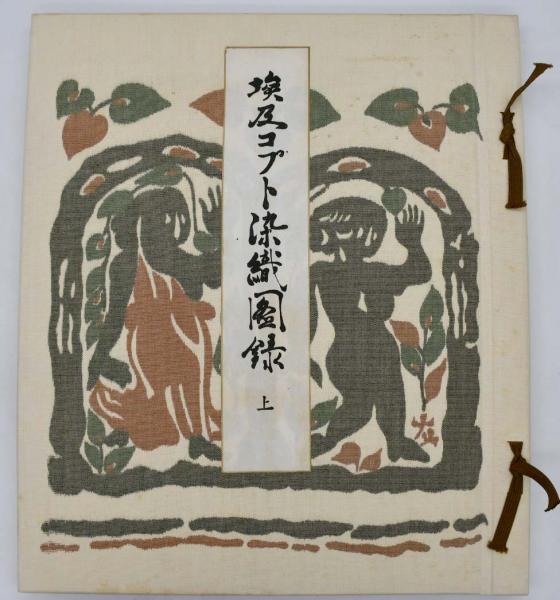 埃及コプト染織図録
上